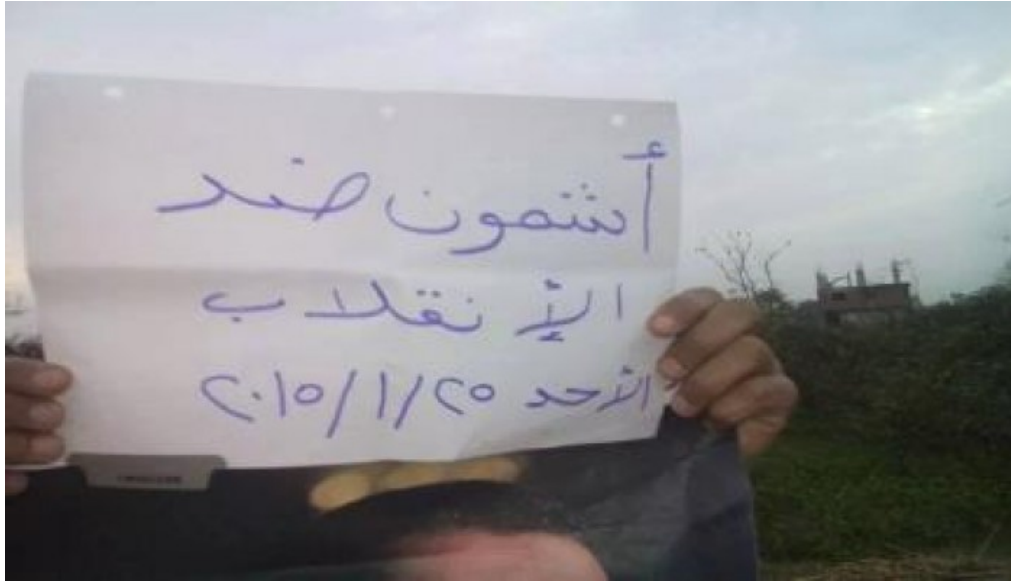 أشمون ضد
الإنقلاب
الأحد ٢٠١٥/١/٢٥